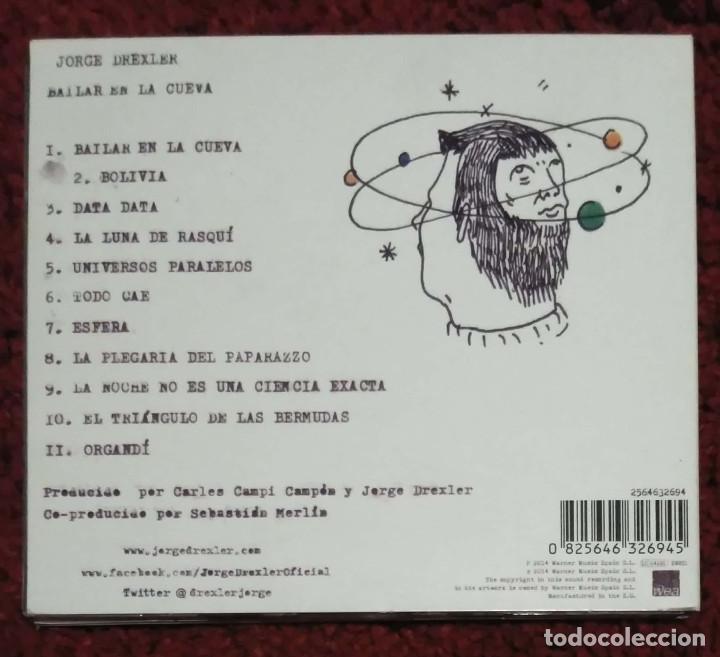 JORGE DREXLER
BAILAR EN LA CUEVA
1. BAILAR EN LA CUEVA
2. BOLIVIA
3. DATA DATA
4. LA LUNA DE RASQUÍ
5. UNIVERSOS PARALELOS
6. TODO CAE
7. ESFERA
8. LA PLEGARIA DEL PAPARAZZO
9. LA NOCHE NO ES UNA CIENCIA EXACTA
10. EL TRIÁNGULO DE LAS BERMUDAS
11. ORGANDÍ
Producido por Carles Campi Campón y Jorge Drexler
Co-producido por Sebastián Merlín
www.jorgedrexler.com
www.facebook.com/JorgeDrexlerOficial
Twitter @drexlerjorge
2564632694
0 825646 326945
P 2014 Warner Music Spain S.L.
© 2014 Warner Music Spain S.L.
The copyright in this sound recording and
in its artwork is owned by Warner Music Spain S.L.
Manufactured in the E.U.
wea
todocoleccion
todocoleccion.net